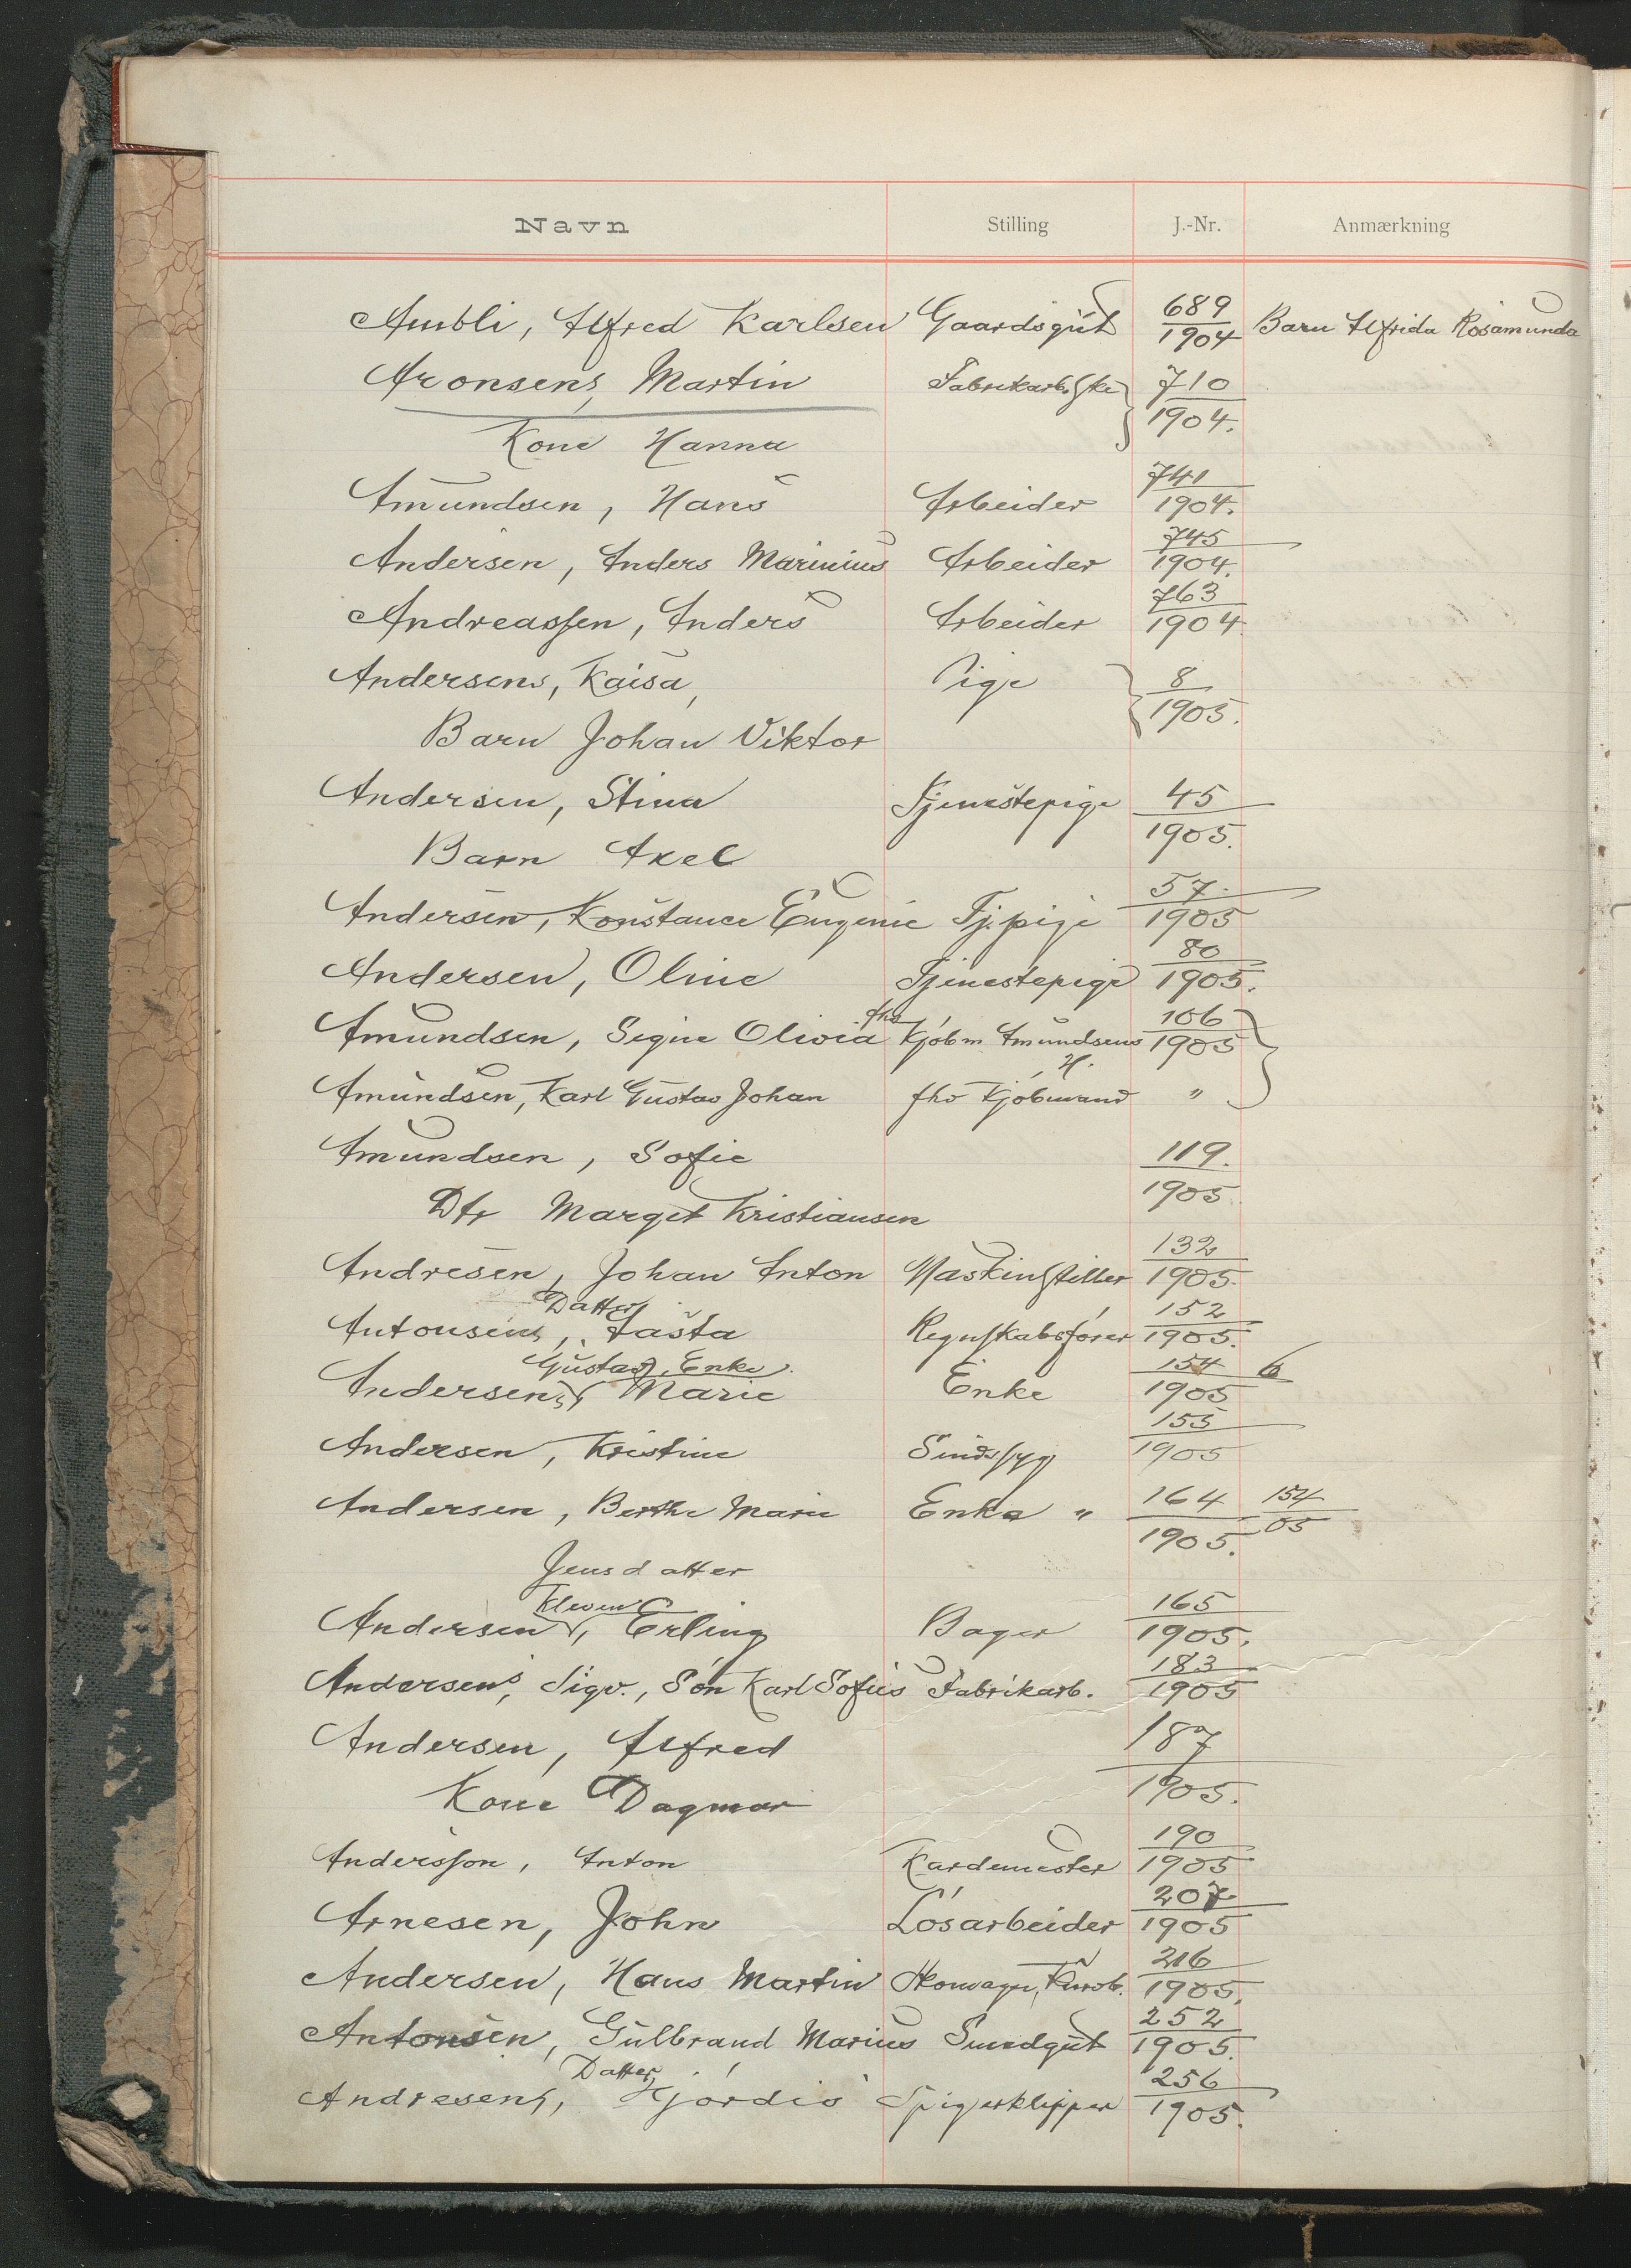 Navn Stilling J.-Nr. Anmærkning
Ambli, Alfred Karlsen Gaardsgut 689/1904 Barn Alfrida Rosamunda
Aronsens, Martin Fabrikarb.ske 710/1904.
Kone Hanna
Amundsen, Hans Arbeider 741/1904.
Andersen, Anders Marinius Arbeider 745/1904.
Andreassen, Anders Arbeider 763/1904
Andersens, Kaisa, Pige 8/1905.
Barn Johan Viktor
Andersen, Stina Tjenestepige 45/1905.
Barn Axel
Andersen, Konstance Eugenie Tj.pige 57/1905
Andersen, Oline Tjenestepige 80/1905.
Amundsen, Signe Olivia fhv Kjøbm Amundsens H. 106/1905
Amundsen, Karl Gustav Johan fhv Kjøbmand "
Amundsen, Sofie 119./1905
Dtr Margit Kristiansen
Andresen, Johan Anton Maskinstiller 132/1905.
Antonsens, Datter Aasta Regnskabsfører 152/1905.
Andersens, Gustav, Enke Marie Enke 154/1905 6
Andersen, Kristine Sindssyg 155/1905
Andersen, Berthe Marie Enke " 164/1905. 154/05
Jensdatter
Andersen, Kleven Erling Bager 165/1905.
Andersens, Sigv., Søn Karl Sofus Fabrikarb. 183/1905
Andersen, Alfred 187/1905.
Kone Dagmar
Andersson, Anton Kardemester 190/1905
Arnesen, John Løsarbeider 207/1905
Andersen, Hans Martin 216/1905.
Antonsen, Gulbrand Marius Smedgut 252/1905.
Andresens, Datter Hjördis Spigerklipper 256/1905.